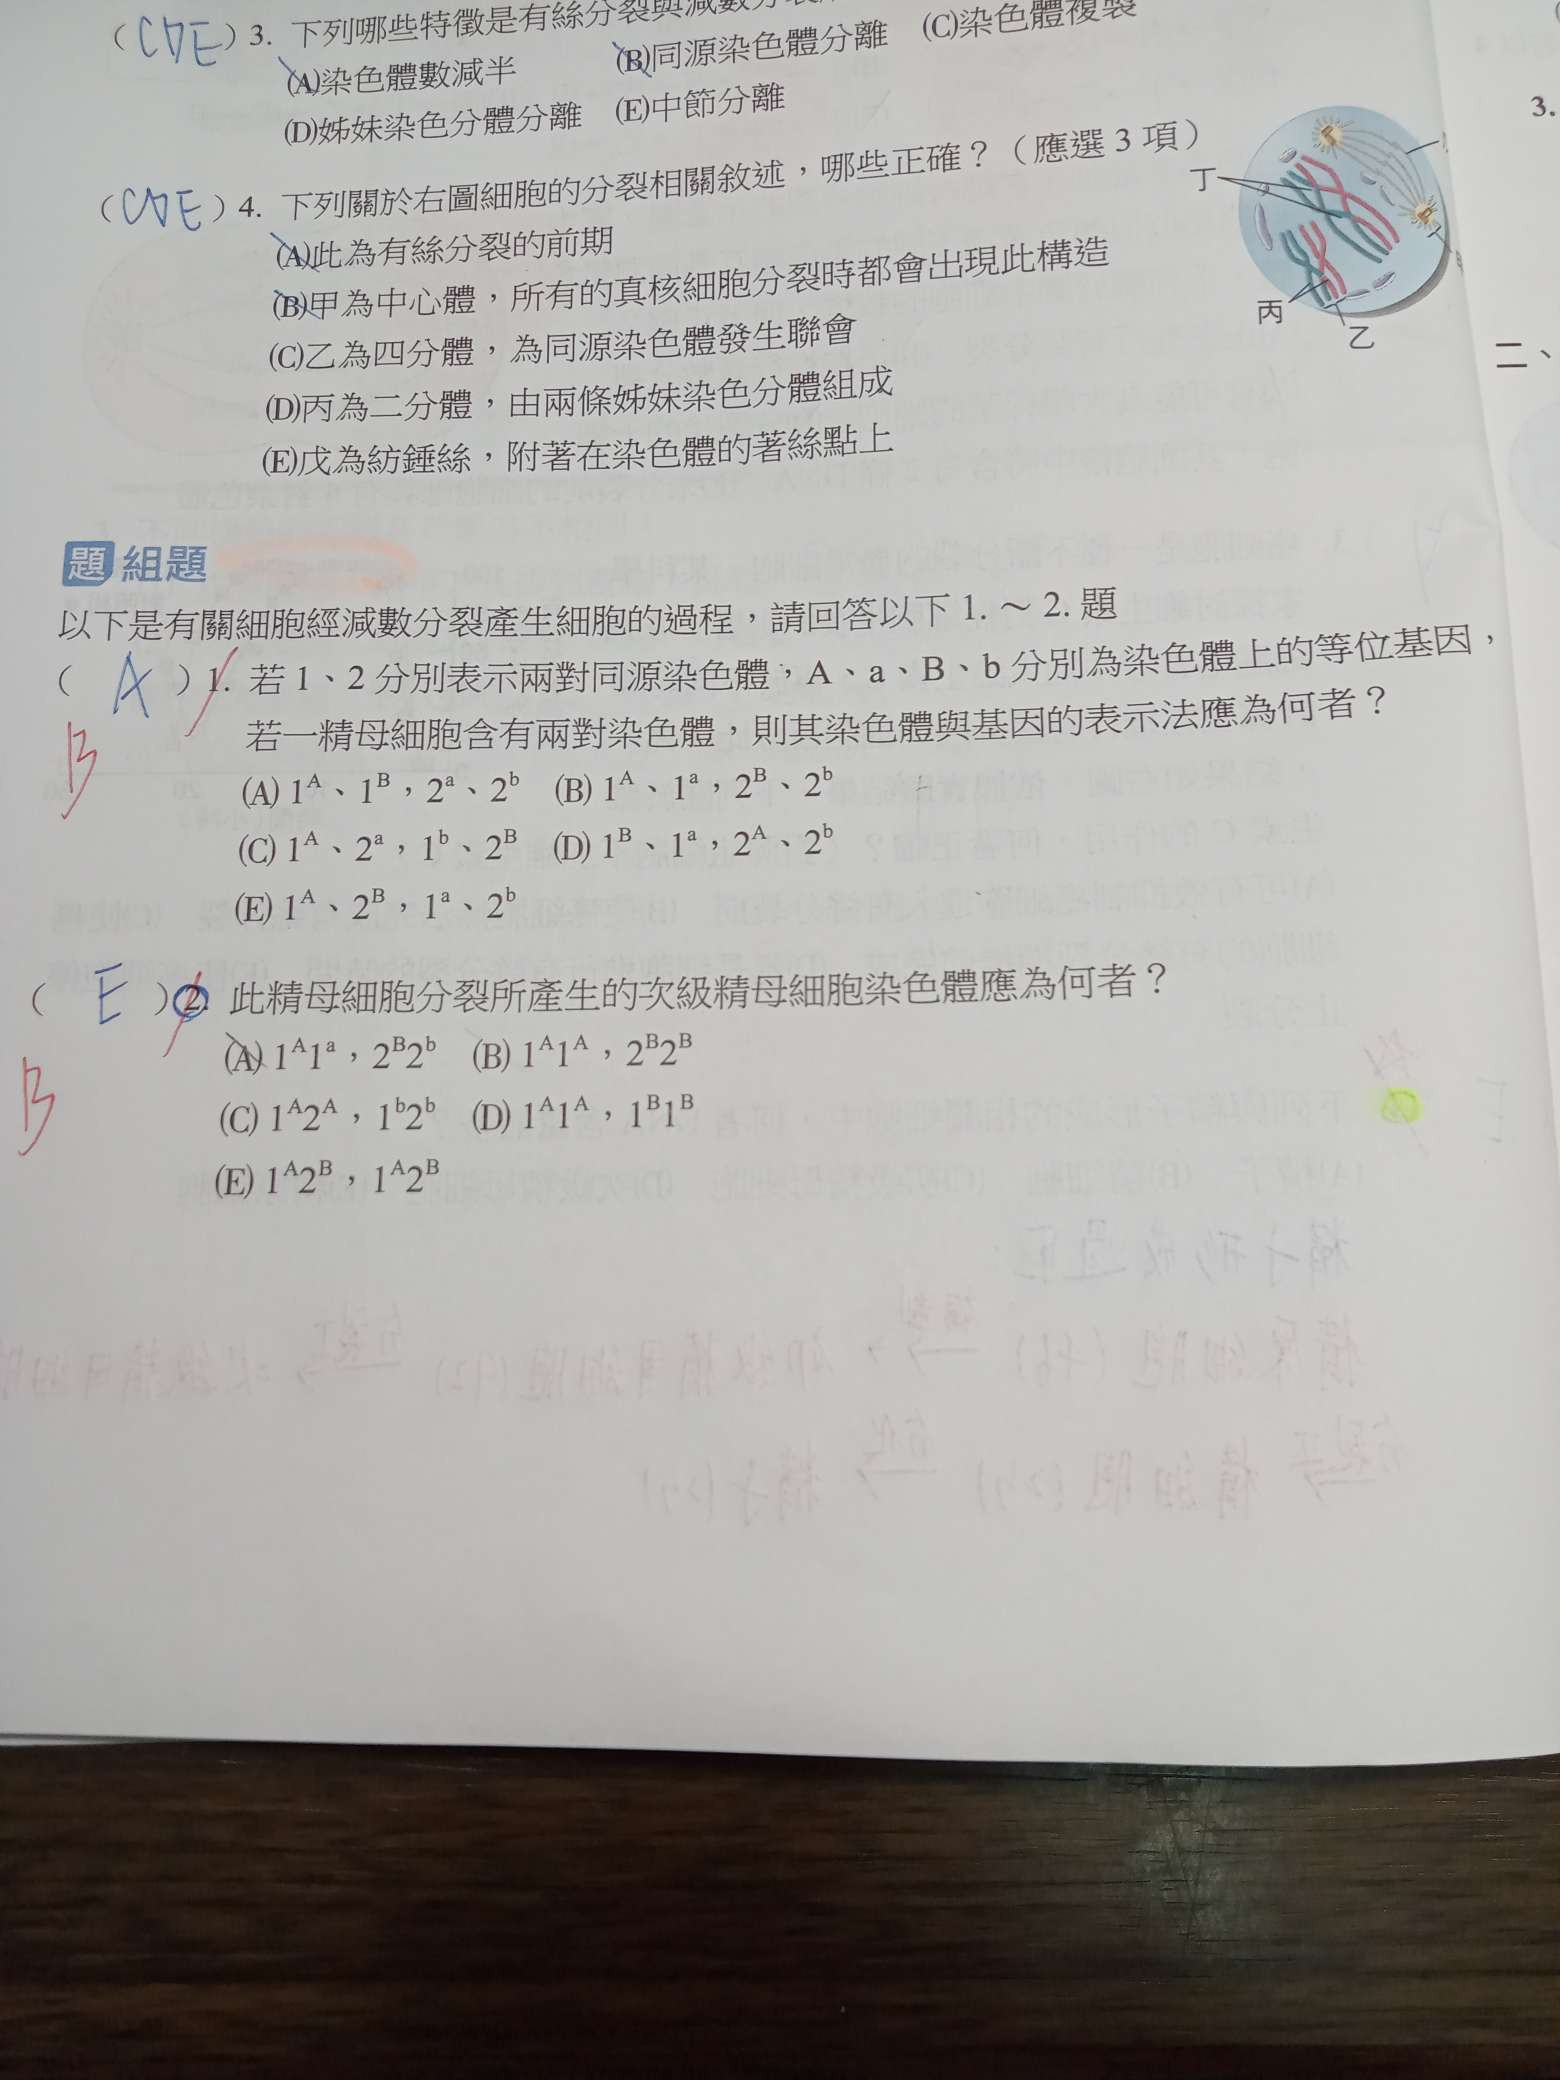 (CDE) 3. 下列哪些特徵是有絲分裂與減數分裂
(A)染色體數減半 (B)同源染色體分離 (C)染色體複製
(D)姊妹染色分體分離 (E)中節分離
(CDE) 4. 下列關於右圖細胞的分裂相關敘述，哪些正確？（應選 3 項）
(A)此為有絲分裂的前期
(B)甲為中心體，所有的真核細胞分裂時都會出現此構造
(C)乙為四分體，為同源染色體發生聯會
(D)丙為二分體，由兩條姊妹染色分體組成
(E)戊為紡錘絲，附著在染色體的著絲點上
丁
丙
乙
3.
二、
題組題
以下是有關細胞經減數分裂產生細胞的過程，請回答以下 1. ～ 2. 題
( A ) 1. 若 1、2 分別表示兩對同源染色體，A、a、B、b 分別為染色體上的等位基因，
B
若一精母細胞含有兩對染色體，則其染色體與基因的表示法應為何者？
(A) 1ᴬ、1ᴮ，2ᵃ、2ᵇ (B) 1ᴬ、1ᵃ，2ᴮ、2ᵇ
(C) 1ᴬ、2ᵃ，1ᵇ、2ᴮ (D) 1ᴮ、1ᵃ，2ᴬ、2ᵇ
(E) 1ᴬ、2ᴮ，1ᵃ、2ᵇ
( E ) 2. 此精母細胞分裂所產生的次級精母細胞染色體應為何者？
B
(A) 1ᴬ1ᵃ，2ᴮ2ᵇ (B) 1ᴬ1ᴬ，2ᴮ2ᴮ
(C) 1ᴬ2ᴬ，1ᵇ2ᵇ (D) 1ᴬ1ᴬ，1ᴮ1ᴮ
(E) 1ᴬ2ᴮ，1ᴬ2ᴮ